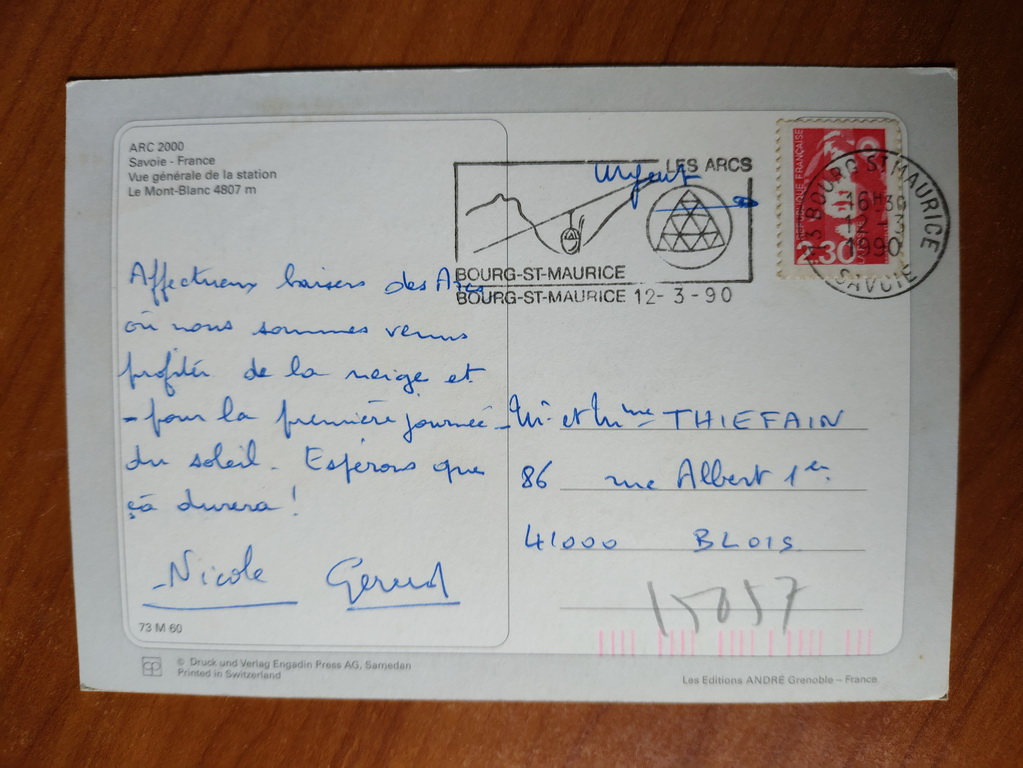 ARC 2000
Savoie - France
Vue générale de la station
Le Mont-Blanc 4807 m
Affectueux baisers des Arcs
où nous sommes venus
profiter de la neige et
- pour la première journée -
du soleil. Espérons que
çà durera !
Nicole Gérard
73 M 60
© Druck und Verlag Engadin Press AG, Samedan
Printed in Switzerland
Urgent
LES ARCS
BOURG-ST-MAURICE
BOURG-ST-MAURICE 12-3-90
RÉPUBLIQUE FRANÇAISE
2.30
73 BOURG ST MAURICE
16H30
12-3
1990
SAVOIE
Mr et Mme THIEFAIN
86 rue Albert 1er
41000 BLOIS
15057
Les Editions ANDRÉ Grenoble – France